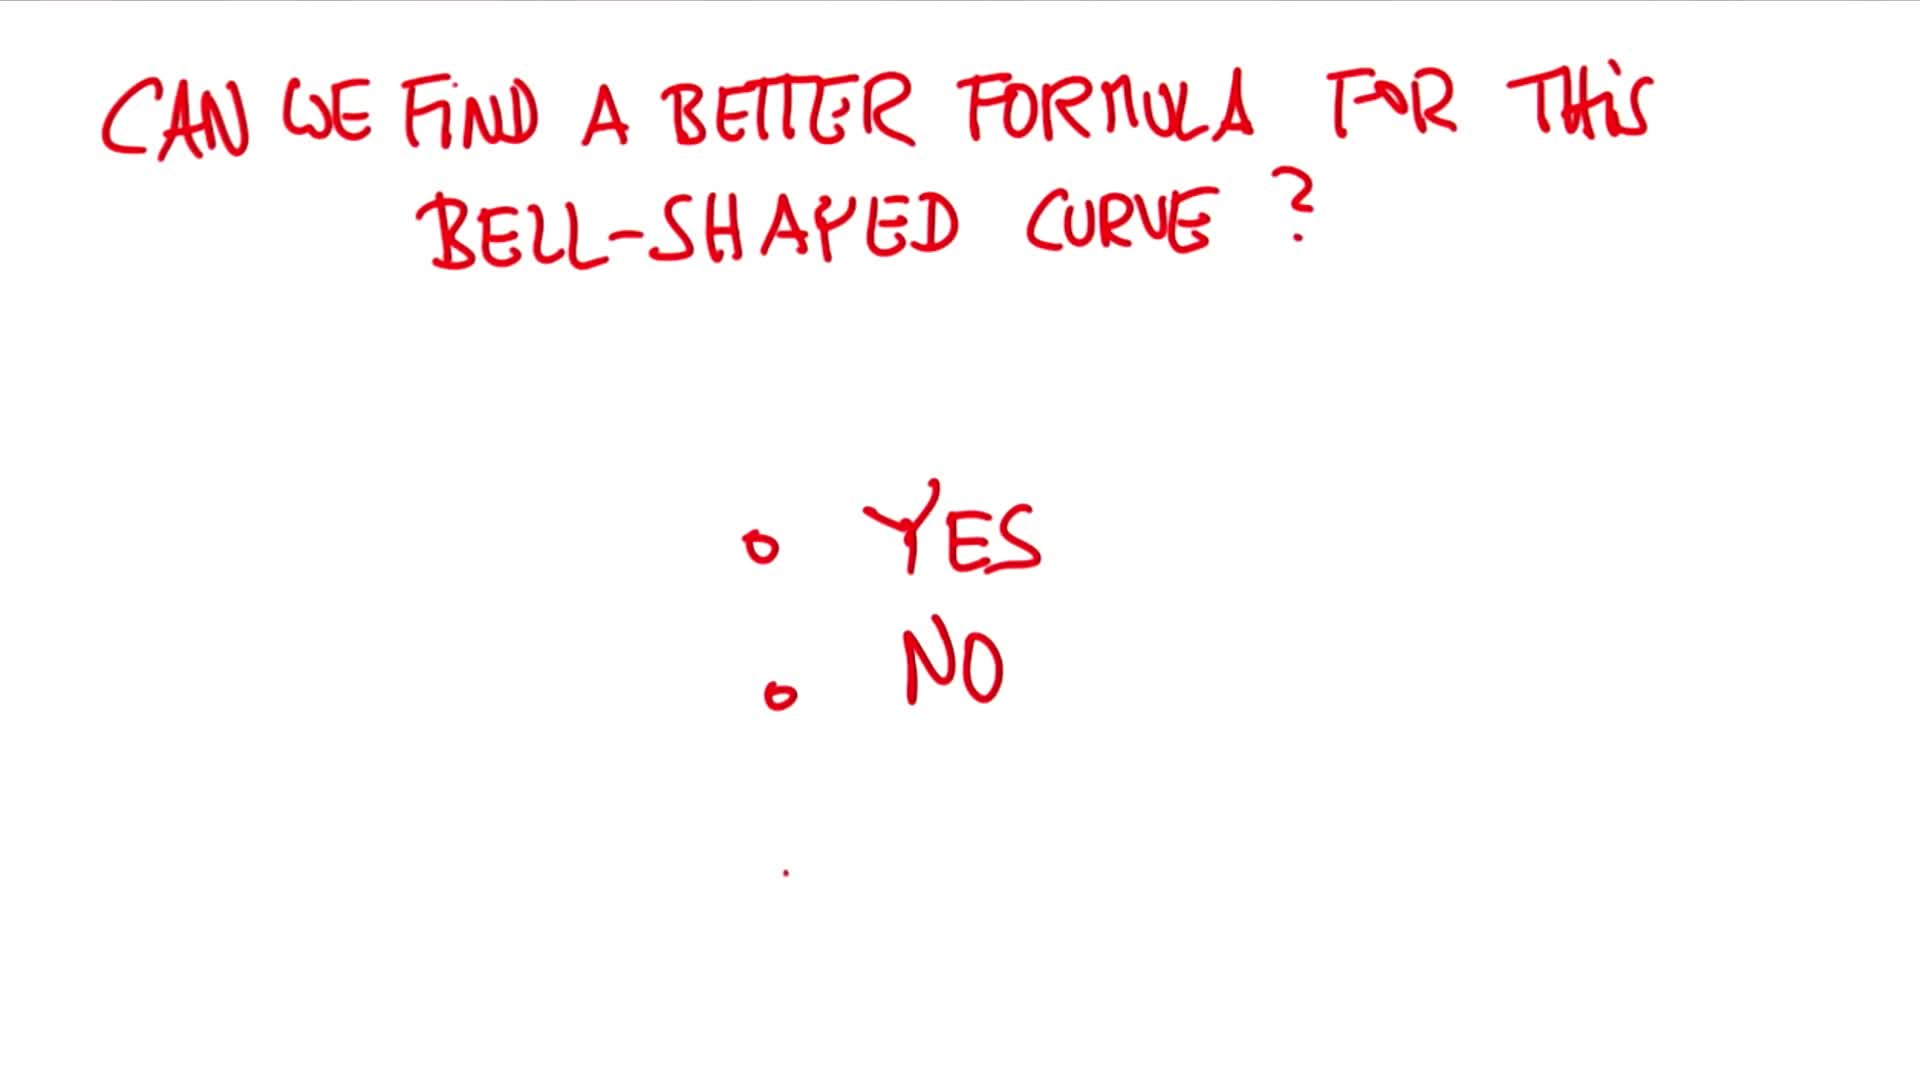 CAN WE FIND A BETTER FORMULA FOR THIS
BELL-SHAPED CURVE ?
YES
NO